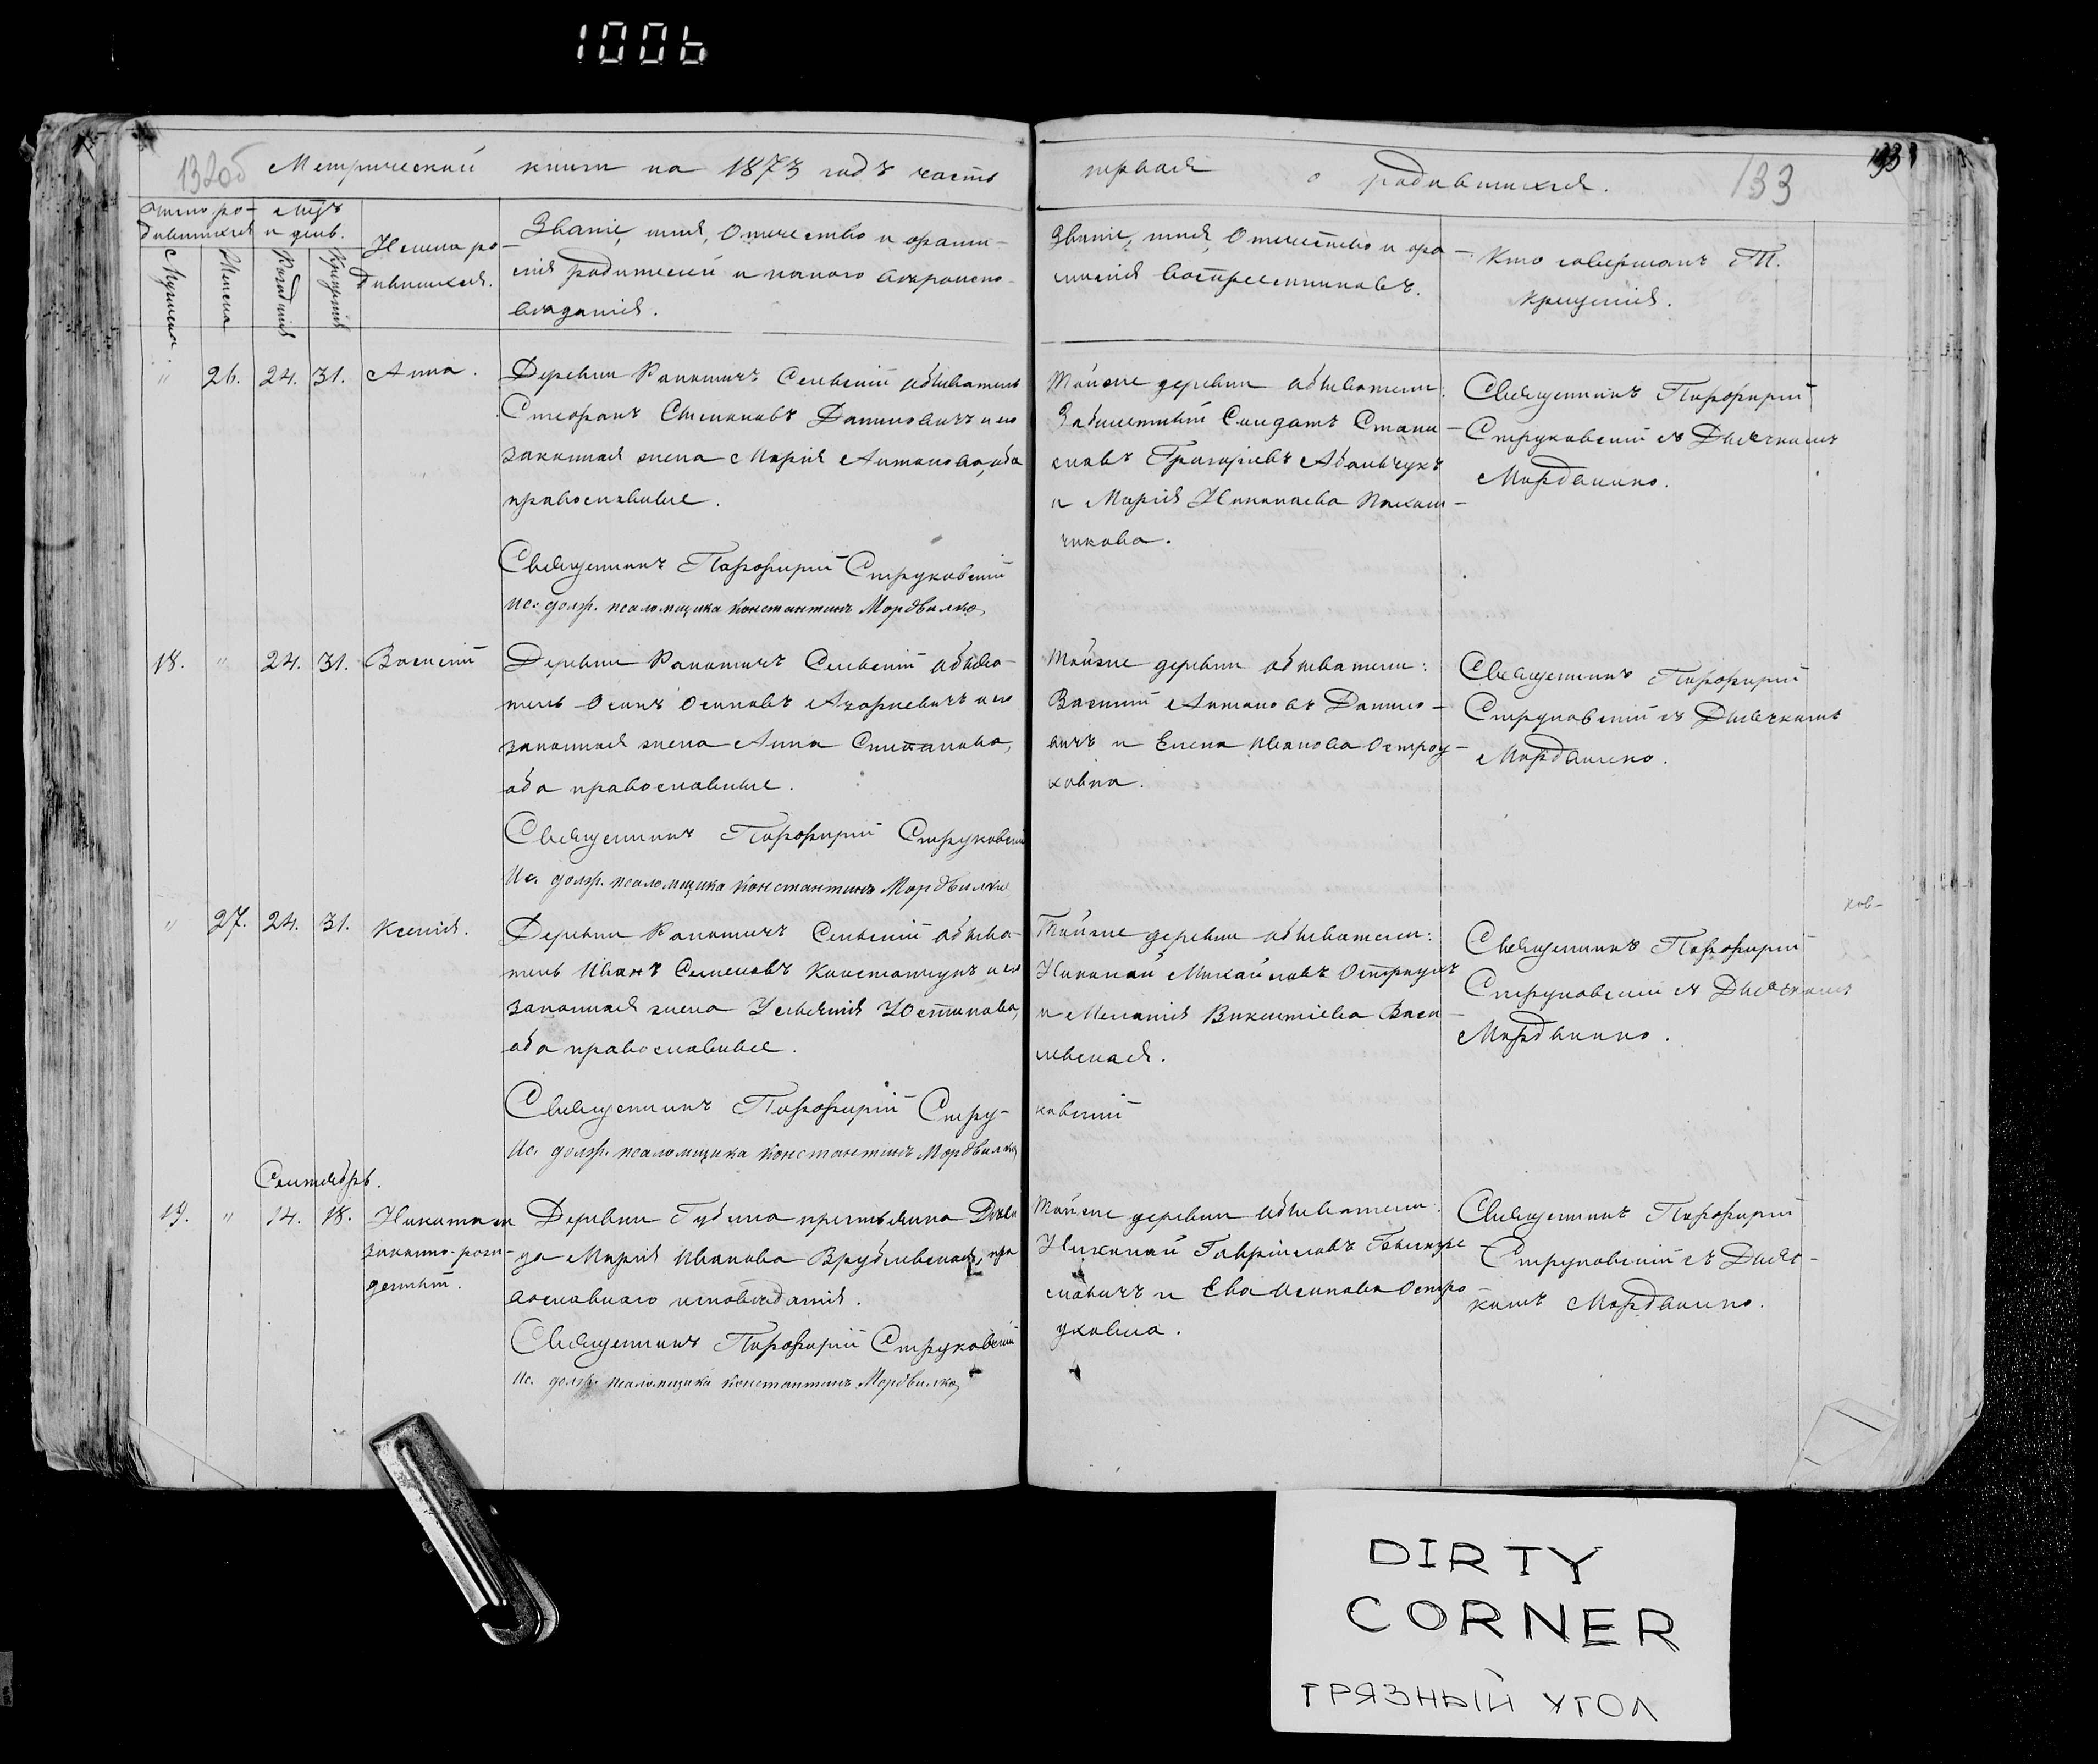 1006
132об Метрической книги на 1873 годъ часть
первая о родившихся. 133
Число ро-
дившихся
Мѣс.
и день.
Мужеска.
Женска
Рожденія
Крещенія
Имена ро-
дившихся.
Званіе, имя, Отчество и фами-
лія родителей и какого вѣроиспо-
вѣданія.
Званіе, имя, Отчество и фа-
милія воспріемниковъ.
Кто совершалъ Т.
крещенія.
" 26. 24. 31. Анна.
Деревни Канатичъ Сельскій обыватель
Стефанъ Стпановъ Даниловичъ и его
законная жена Марія Антонова, оба
православные.
Священникъ Порфирій Струковскій
Ис. долж. псаломщика Константинъ Мордвилко
Тойже деревни обыватели:
Забилетный Солдатъ Стани-
славъ Григорьевъ Абанчукъ
и Марія Николаева
чикова.
Священникъ Порфирій
Струковскій съ Дьячкомъ
Мордвилко.
18. " 24. 31. Василій
Деревни Канатичъ Сельскій обыва-
тель Осипъ Осиповъ и его
законная жена Анна Степанова,
оба православные.
Священникъ Порфирій Струковскій
Ис. долж. псаломщика Константинъ Мордвилко
Тойже деревни обыватели:
Василій Антоновъ Данило-
вичъ и Елена Иванова Остроу-
ховна.
Священникъ Порфирій
Струковскій съ Дьячкомъ
Мордвилко.
" 27. 24. 31. Ксенія.
Деревни Канатичъ Сельскій обыва-
тель Иванъ Семеновъ и его
законная жена Устинова,
оба православные.
Священникъ Порфирій Стру-
ковскій
Ис. долж. псаломщика Константинъ Мордвилко
Тойже деревни обыватели:
Николай Михайловъ
и Меланія Викентіева Васи-
левская.
Священникъ Порфирій
Струковскій съ Дьячкомъ
Мордвилко.
ков-
Сентябрь.
19. " 14. 18. Никита не
законно-рож-
денный.
Деревни Губина крестьянка Дѣви-
ца Марія Иванова Врублевская, пра
вославнаго исповѣданія.
Священникъ Порфирій Струковскій
Ис. долж. псаломщика Константинъ Мордвилко
Тойже деревни обыватели:
Николай Гавріиловъ
и Ева Осипова Остро
уховна.
Священникъ Порфирій
Струковскій съ Дьяч-
комъ Мордвилко.
DIRTY
CORNER
ГРЯЗНЫЙ УГОЛ